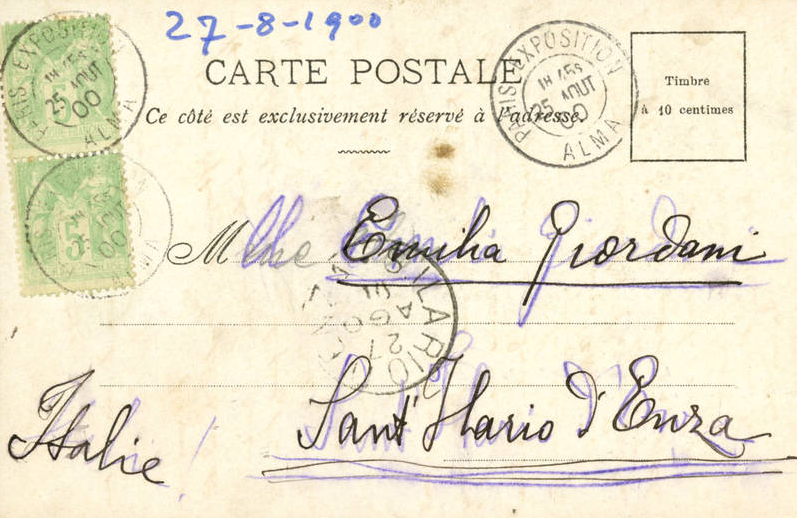 27-8-1900
CARTE POSTALE
Ce côté est exclusivement réservé à l'adresse.
Timbre
à 10 centimes
PARIS EXPOSITION
25 AOUT
00
ALMA
PARIS EXPOSITION
25 AOUT
00
ALMA
5
5
AOUT
00
Mlle Emilia Giordani
ILARIO
27
AGO
Sant' Ilario d'Enza
Italie